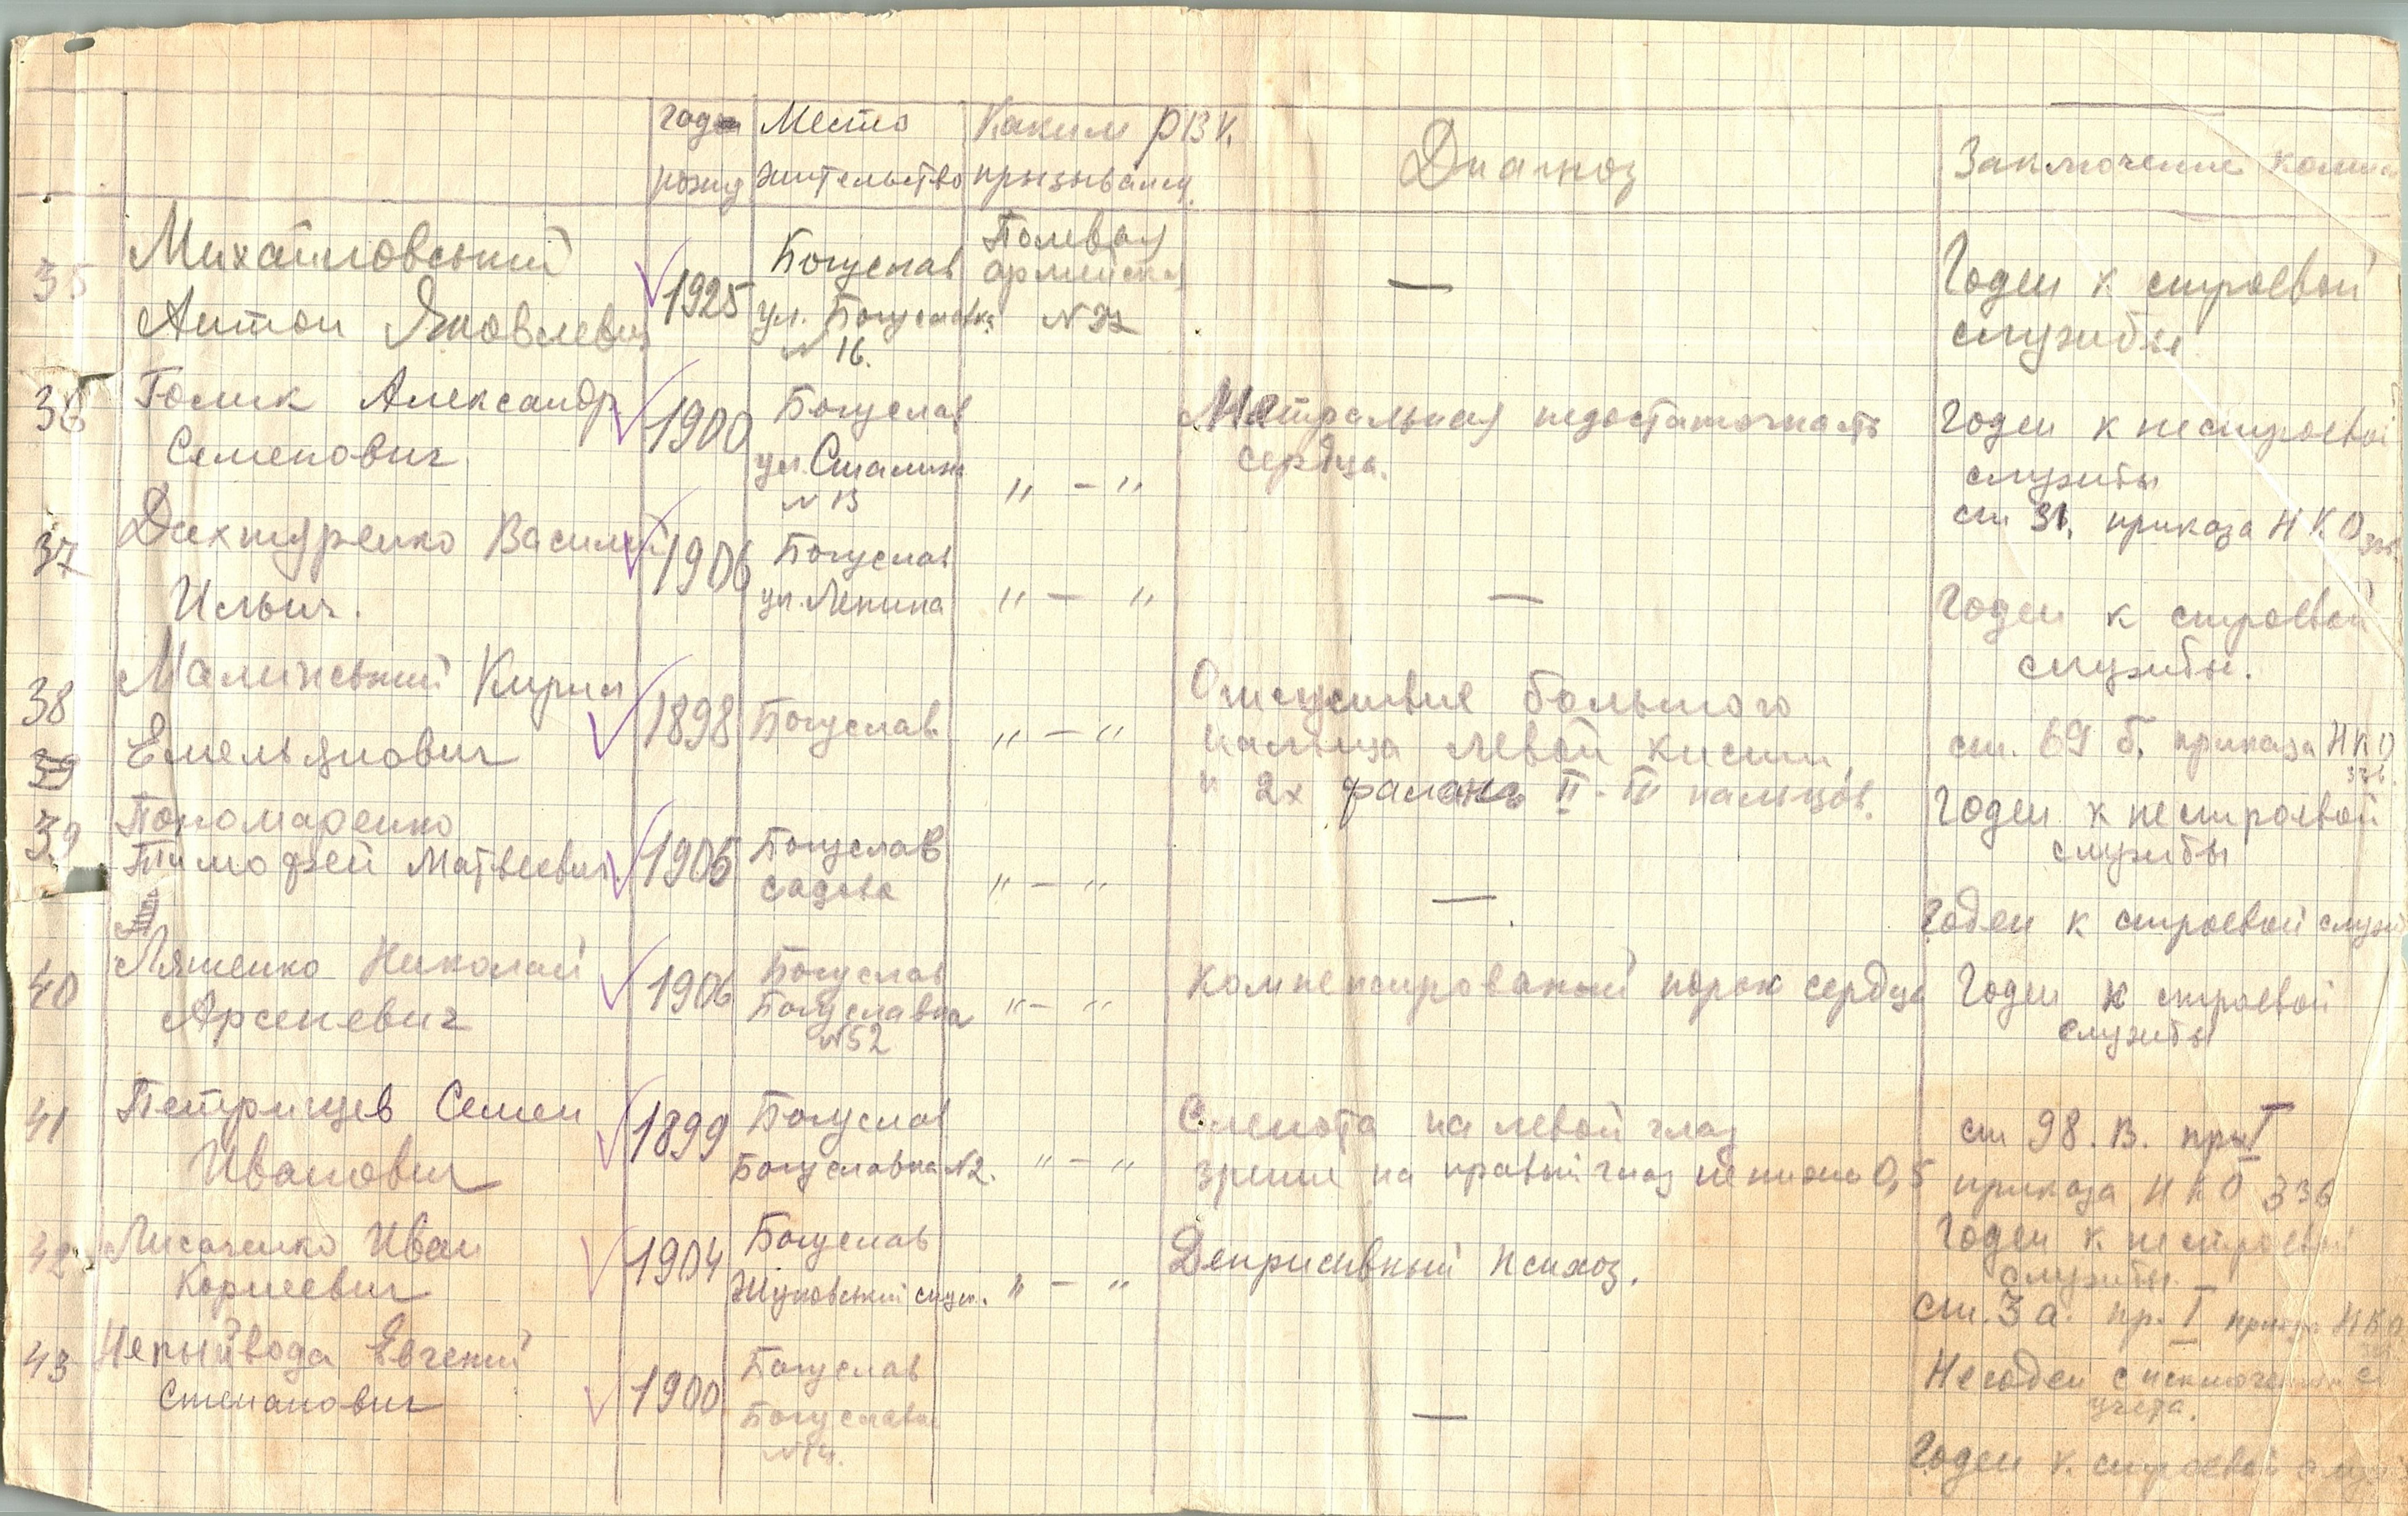 год рожд Место жительство Каким РВК призывался Диагноз Заключение комис
35 Михайловський Антон Яковлевич 1925 Богуслав ул. Богуславка N 16. Полевая армейская N 37 — Годен к строевой службы
36 Голик Александр Семенович 1900 Богуслав ул. Сталина N 13 " — " Митральная недостаточность сердца. Годен к нестроевой службы ст 31. приказа НКО 336
37 Дахтуренко Василий Ильич. 1906 Богуслав ул. Ленина " — " — Годен к строевой службы.
38 Малинський Кирил Емельянович 1898 Богуслав " — " Отсуствие большого пальца левой кисти и 2х фаланг II - IV пальцов. ст. 69 б. приказа НКО 336 Годен к нестроевой службы
39
39 Пономаренко Тимофей Матвеевич 1905 Богуслав садова " — " — Годен к строевой служ
40 Ляшенко Николай Арсеневич 1906 Богуслав Богуславка N52 " — " Компенсированый порок сердца Годен к строевой службы
41 Петрищев Семен Иванович 1899 Богуслав Богуславка N2. " — " Слепота на левой глаз зрение на правый глаз не ниже 0,5 ст 98. в. пр I приказа НКО 336 Годен к нестроевой службы
42 Лисаченко Иван Корнеевич 1904 Богуслав " — " Деприсивный психоз. ст. 3 а. пр. I приказа НКО Негоден с исключением с учета.
43 Неприйвода Евгений Степанович 1900 Богуслав Богуславка N14. — Годен к строевой служ